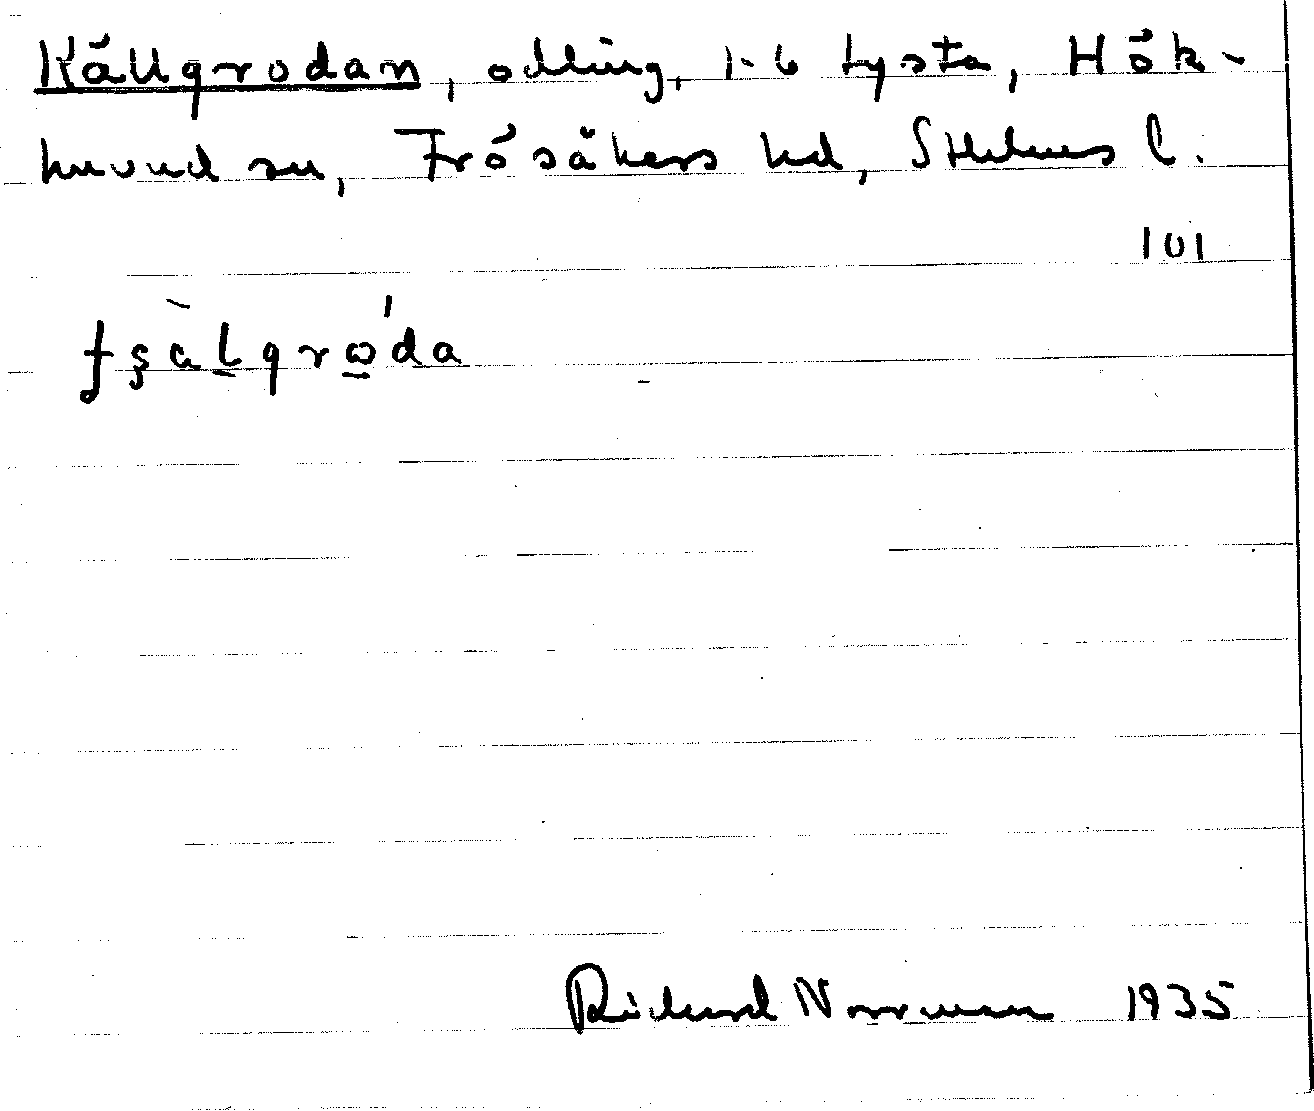 Källgrodan, odling, 1-6 Lysta, Hök-
huvud sn, Frösåkers hd, Sthlms l.
101
Richard Norrman 1935